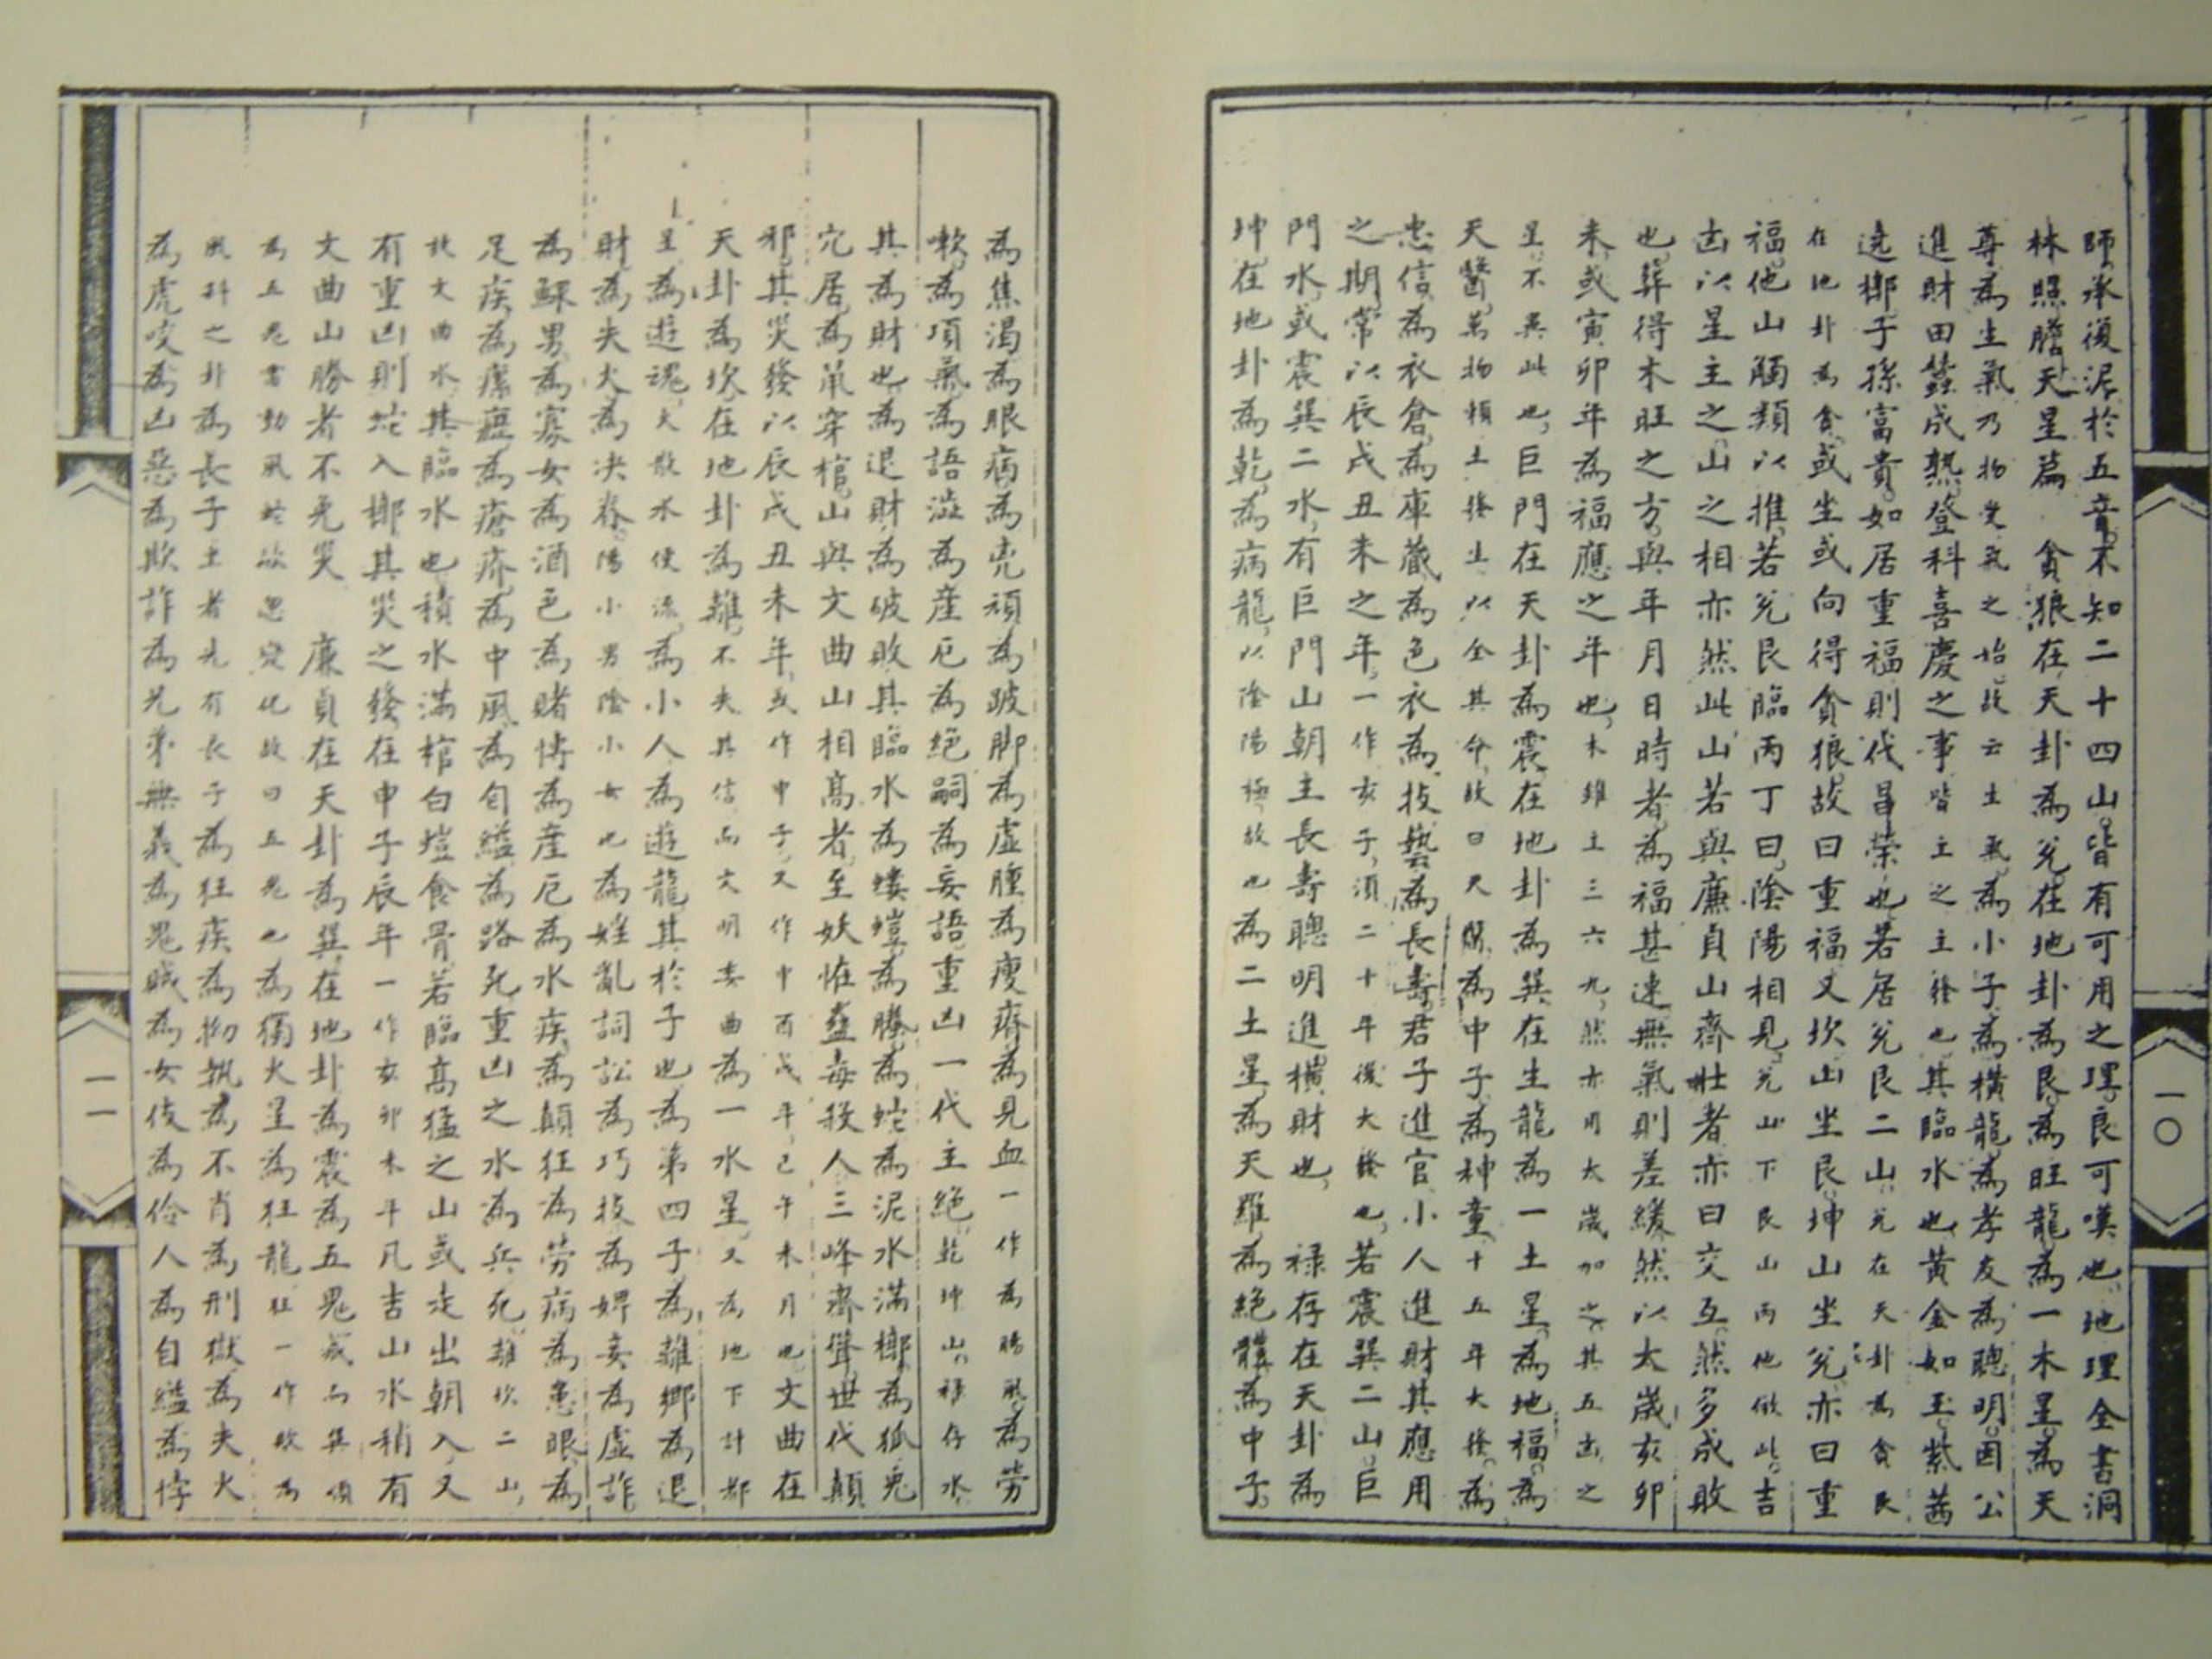 師承復泥於五音不知二十四山皆有可用之理良可嘆也地理全書洞
林照膽天星篇　貪狼在天卦為兌在地卦為艮為旺龍為一木星為天
尊為生氣乃物受氣之始故云生氣為小子為橫龍為孝友為聰明因公
進財田蠶成熟登科喜慶之事皆主之主發也其臨水也黃金如玉紫茜
遶槨子孫富貴如居重福則代昌榮也若居兌艮二山兌在天卦為貪艮
在地卦為貪或坐或向得貪狼故曰重福又坎山坐艮坤山坐兌亦曰重
福他山觸類以推若兌艮臨丙丁曰陰陽相見兌山下艮山丙他倣此吉
凶以星主之山之相亦然此山若與廉貞山齊壯者亦曰交互然多成敗
也葬得木旺之方與年月日時者為福甚速無氣則差緩然以太歲亥卯
未或寅卯年為福應之年也木雖主三六九然亦用太歲加之其五凶之
星不異此也巨門在天卦為震在地卦為巽在生龍為一土星為地福為
天醫萬物頼土發生以全其命故曰天醫為中子為神童十五年大發為
忠信為衣倉為庫藏為色衣為技藝為長壽君子進官小人進財其應用
之期常以辰戌丑未之年一作亥子須二十年後大發也若震巽二山巨
門水或震巽二水有巨門山朝主長壽聰明進橫財也　祿存在天卦為
坤在地卦為乾為病龍以陰陽極故也為二土星為天羅為絕體為中子
一〇
為焦渴為眼病為禿頑為跛脚為虛腫為瘦瘠為見血一作為腸風為勞
嗽為項氣為語澁為產厄為絕嗣為妄語重凶一代主絕乾坤山祿存水
其為財也為退財為破敗其臨水為螻螘為螣為蛇為泥水滿槨為狐兎
穴居為鼠穿棺山與文曲山相高者至妖恠蠱毒殺人三峰齊聳世代顛
邪其災發以辰戌丑未年或作申子又作申酉戌年己午未月也文曲在
天卦為坎在地卦為離不失其信而文明委曲為一水星又為地下計都
星為遊魂大散水使流為小人為遊龍其於子也為第四子為離鄉為退
財為失火為决脊陽小男陰小女也為婬亂詞訟為巧技為婢妾為虛詐
為鰥男為寡女為酒色為賭博為產厄為水疾為顛狂為勞病為患眼為
足疾為瘰癧為瘡疥為中風為自縊為路死重凶之水為兵死離坎二山
扗文曲水其臨水也積水滿棺白螘食骨若臨高猛之山或走出朝入又
有重凶則蛇入槨其災之發在申子辰年一作亥卯未年凡吉山水稍有
文曲山勝者不免災　廉貞在天卦為巽在地卦為震為五鬼
為獨火星為狂龍狂一作
風科之卦為長子主者先有長子為狂疾為拗執為不肖為刑獄為失火
為虎咬為凶惡為欺詐為兄弟無義為鬼賊為女伎為伶人為自縊為悖
一一